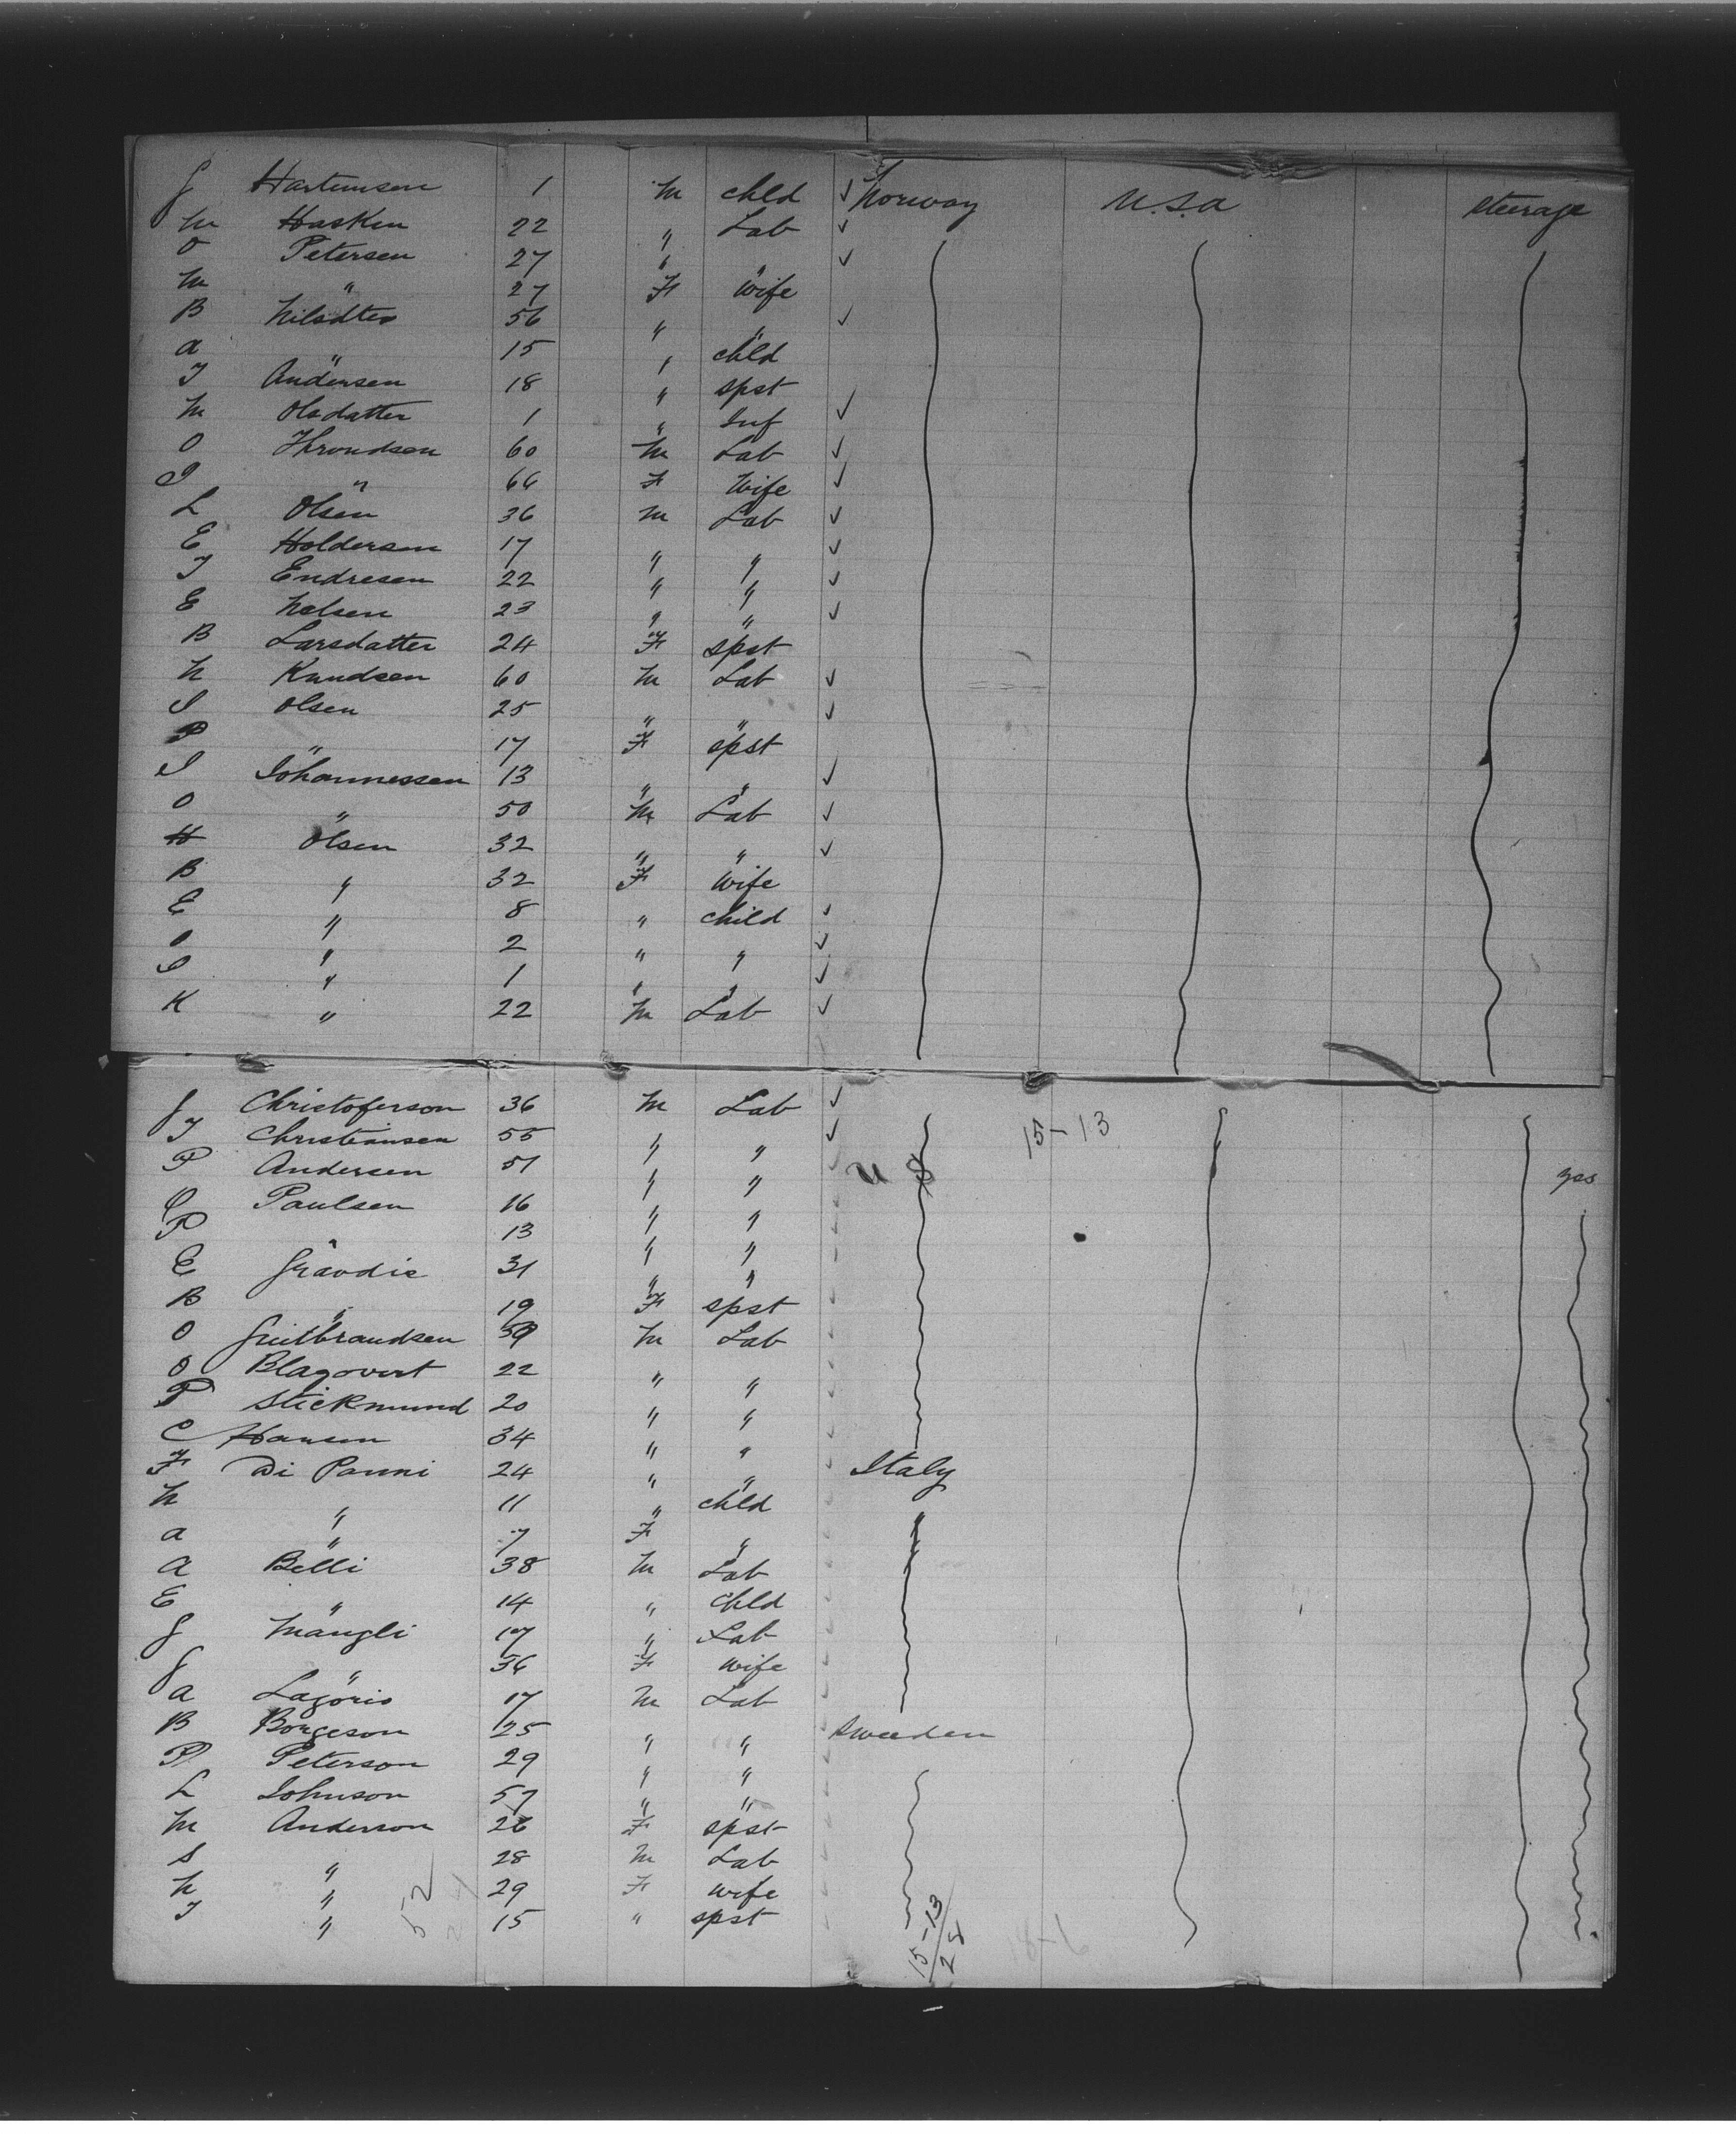 G Hartemsen 1 M chld ✓ Norway U.S.A steerage
M Hasken 22 " Lab ✓
O Petersen 27 " " ✓
M " 27 F Wife
B Nilsdter 56 " " ✓
A " 15 " child
J Andersen 18 " spst
M Olsdatter 1 " Inf ✓
O Throndsen 60 M Lab ✓
I " 66 F Wife ✓
L Olsen 36 M Lab ✓
E Haldersen 17 " " ✓
J Endresen 22 " " ✓
E Nelsen 23 " " ✓
B Larsdatter 24 F spst
N Knudsen 60 M Lab ✓
I Olsen 25 " " ✓
P " 17 F spst
I Johannessen 13 " " ✓
O " 50 M Lab ✓
H Olsen 32 " " ✓
B " 32 F Wife
E " 8 " child ✓
O " 2 " " ✓
" 1 " " ✓
K " 22 M Lab ✓
G Christoferson 36 M Lab ✓
J Christiansen 55 " " ✓ 15-13
P Andersen 51 " " U S yes
Paulsen 16 " "
P " 13 " "
E 31 " "
B " 19 F spst
O Gulbrandsen 39 M Lab
O Blagovert 22 " "
P Stickmund 20 " "
C Hansen 34 " "
F Di Panni 24 " " Italy
N " 11 " chld
A " 7 F "
A Belli 38 M Lab
E " 14 " chld
G Mangli 17 " Lab
G " 36 F wife
A Lagorio 17 M Lab
B Borgeson 25 " " Sweeden
P Peterson 29 " "
L Johnson 57 " "
M Anderson 26 F spst
S " 28 M Lab
N " 52 29 F wife
J " 15 " spst 15-13
28
18-6